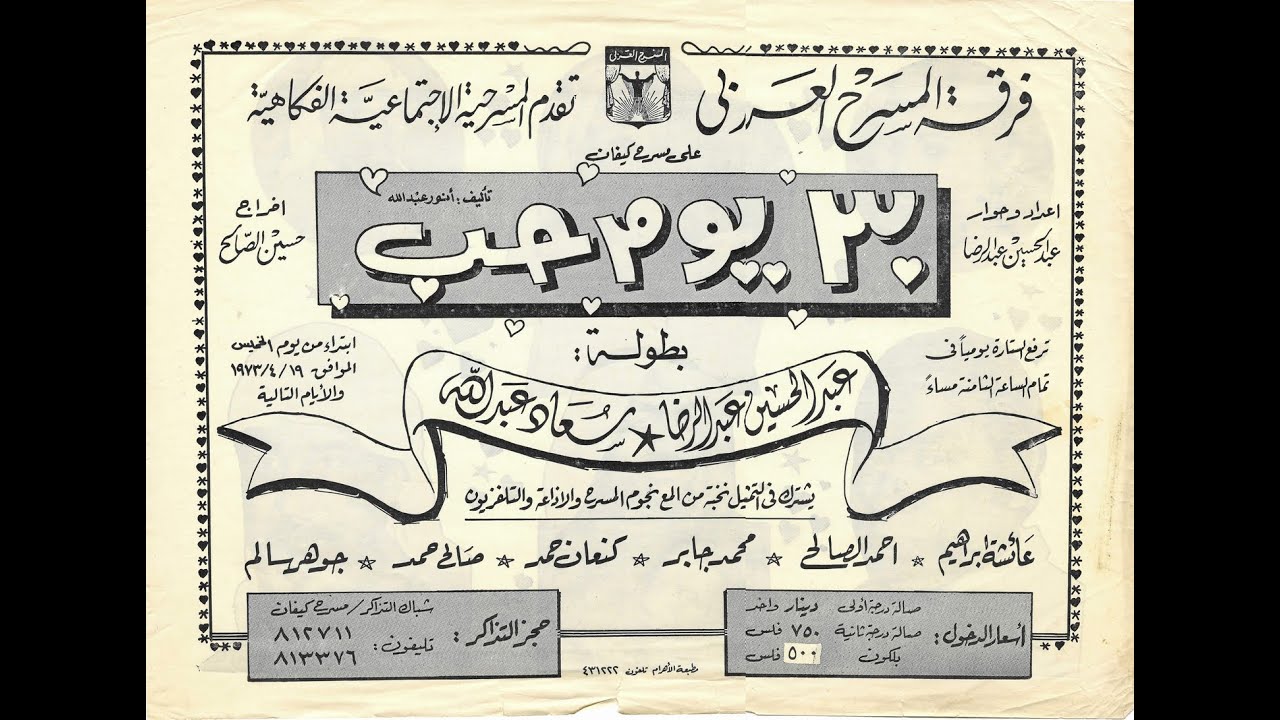 المسرح العربي
فرقة المسرح العربي
تقدم المسرحية الإجتماعية الفكاهية
على مسرح كيفان
اعداد وحوار
عبدالحسين عبدالرضا
تأليف: أنور عبدالله
٣٠ يوم حب
اخراج
حسين الصالح
ترفع الستارة يومياً فى
تمام الساعة الثامنة مساءً
بطولة:
عبدالحسين عبدالرضا ★ سعاد عبدالله
ابتداء من يوم الخميس
الموافق ١٩/٤/١٩٧٣
والأيام التالية
يشترك فى التمثيل نخبة من المع نجوم المسرح والاذاعة والتلفزيون
عائشة ابراهيم ☆ احمد الصالح ☆ محمد جابر ☆ كنعان حمد ☆ صالح حمد ☆ جوهر سالم
أسعار الدخول:
صالة درجة أولى دينار واحد
صالة درجة ثانية ٧٥٠ فلس
بلكون ٥٠٠ فلس
حجز التذاكر:
شباك التذاكر/مسرح كيفان
تليفون: ٨١٢٧١١
٨١٣٣٧٦
مطبعة الأهرام تلفون ٤٣١٢٢٢